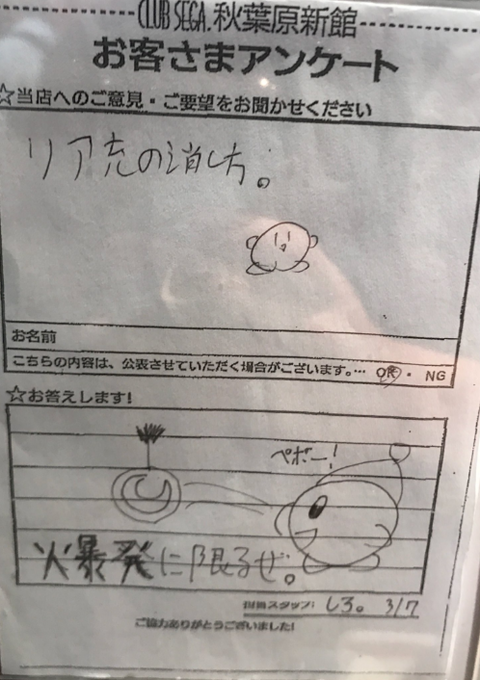 CLUB SEGA.秋葉原新館
お客さまアンケート
☆当店へのご意見・ご要望をお聞かせください
リア充の消し方。
お名前
こちらの内容は、公表させていただく場合がございます。… OK・ NG
☆お答えします!
ペポー!
火暴発に限るぜ。
担当スタッフ: しろ。 3/7
ご協力ありがとうございました!